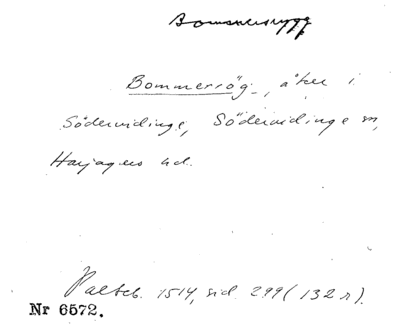 Bommersrygg
Bommersög, åker i
Södervidinge, Södervidinge sn,
Harjagers hd.
Palteb. 1514, sid. 299 (132 r).
Nr 6572.